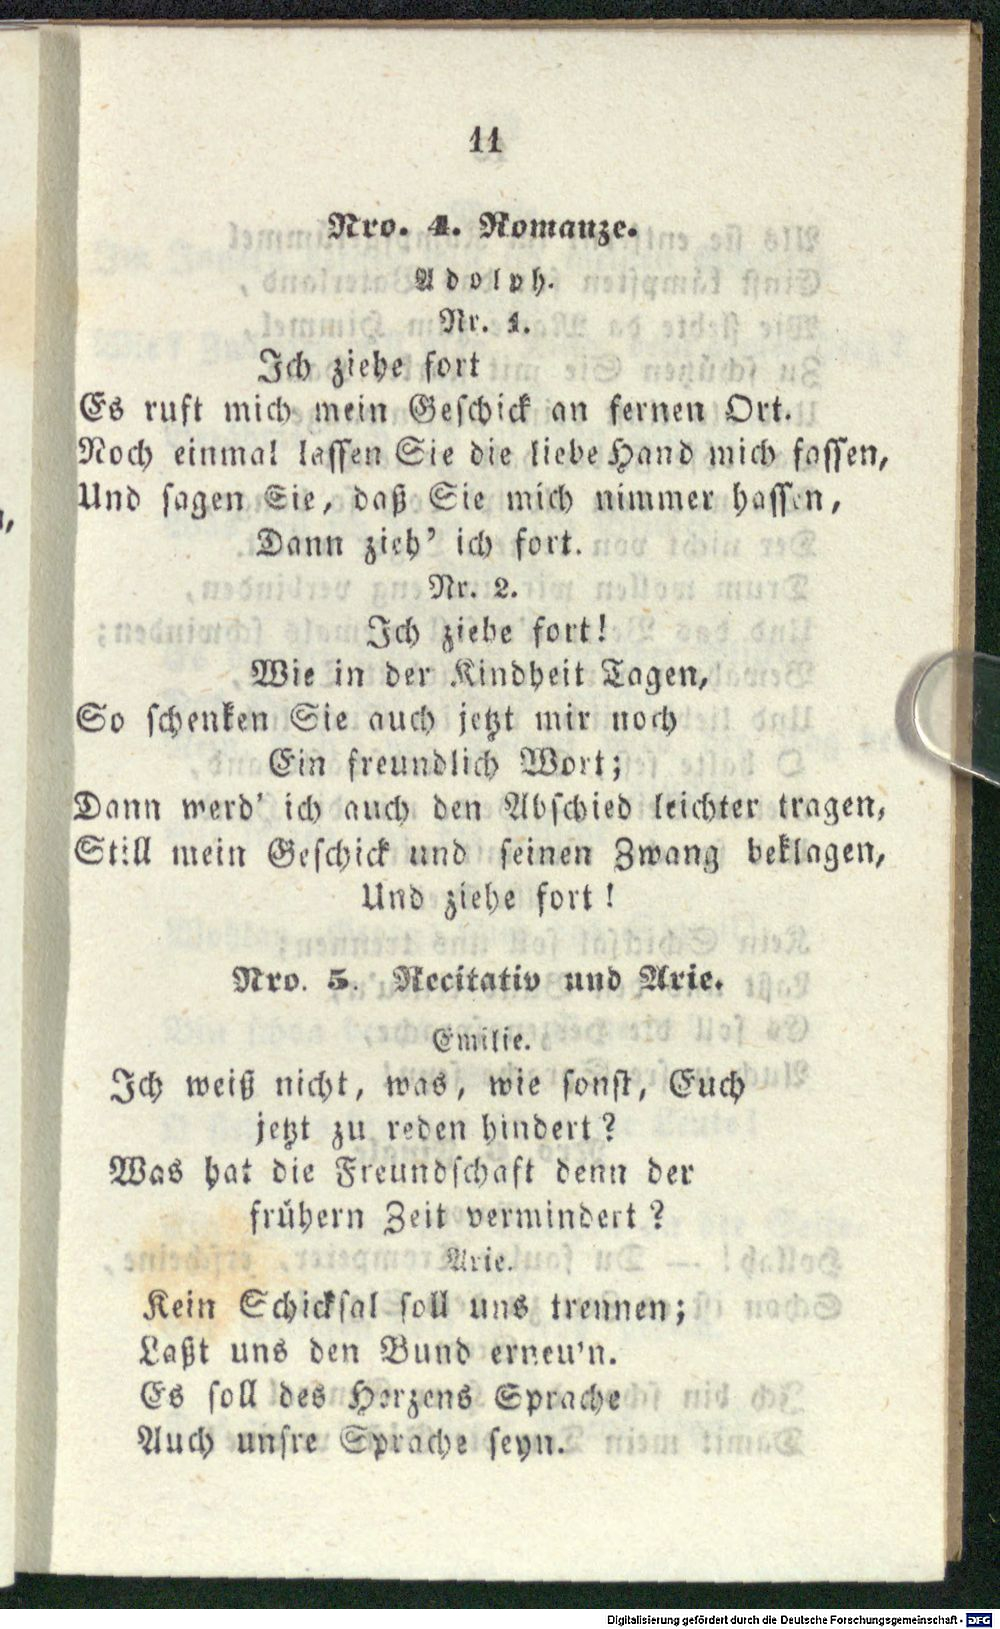 11
Nro. 4. Romanze.
Adolph.
Nr. 1.
Ich ziehe fort
Es ruft mich mein Geschick an fernen Ort.
Noch einmal lassen Sie die liebe Hand mich fassen,
Und sagen Sie, daß Sie mich nimmer hassen,
Dann zieh' ich fort.
Nr. 2.
Ich ziehe fort!
Wie in der Kindheit Tagen,
So schenken Sie auch jetzt mir noch
Ein freundlich Wort;
Dann werd' ich auch den Abschied leichter tragen,
Still mein Geschick und seinen Zwang beklagen,
Und ziehe fort!
Nro. 5. Recitativ und Arie.
Emilie.
Ich weiß nicht, was, wie sonst, Euch
jetzt zu reden hindert?
Was hat die Freundschaft denn der
frühern Zeit vermindert?
Arie.
Kein Schicksal soll uns trennen;
Laßt uns den Bund erneu'n.
Es soll des Herzens Sprache
Auch unsre Sprache seyn.
Digitalisierung gefördert durch die Deutsche Forschungsgemeinschaft - DFG